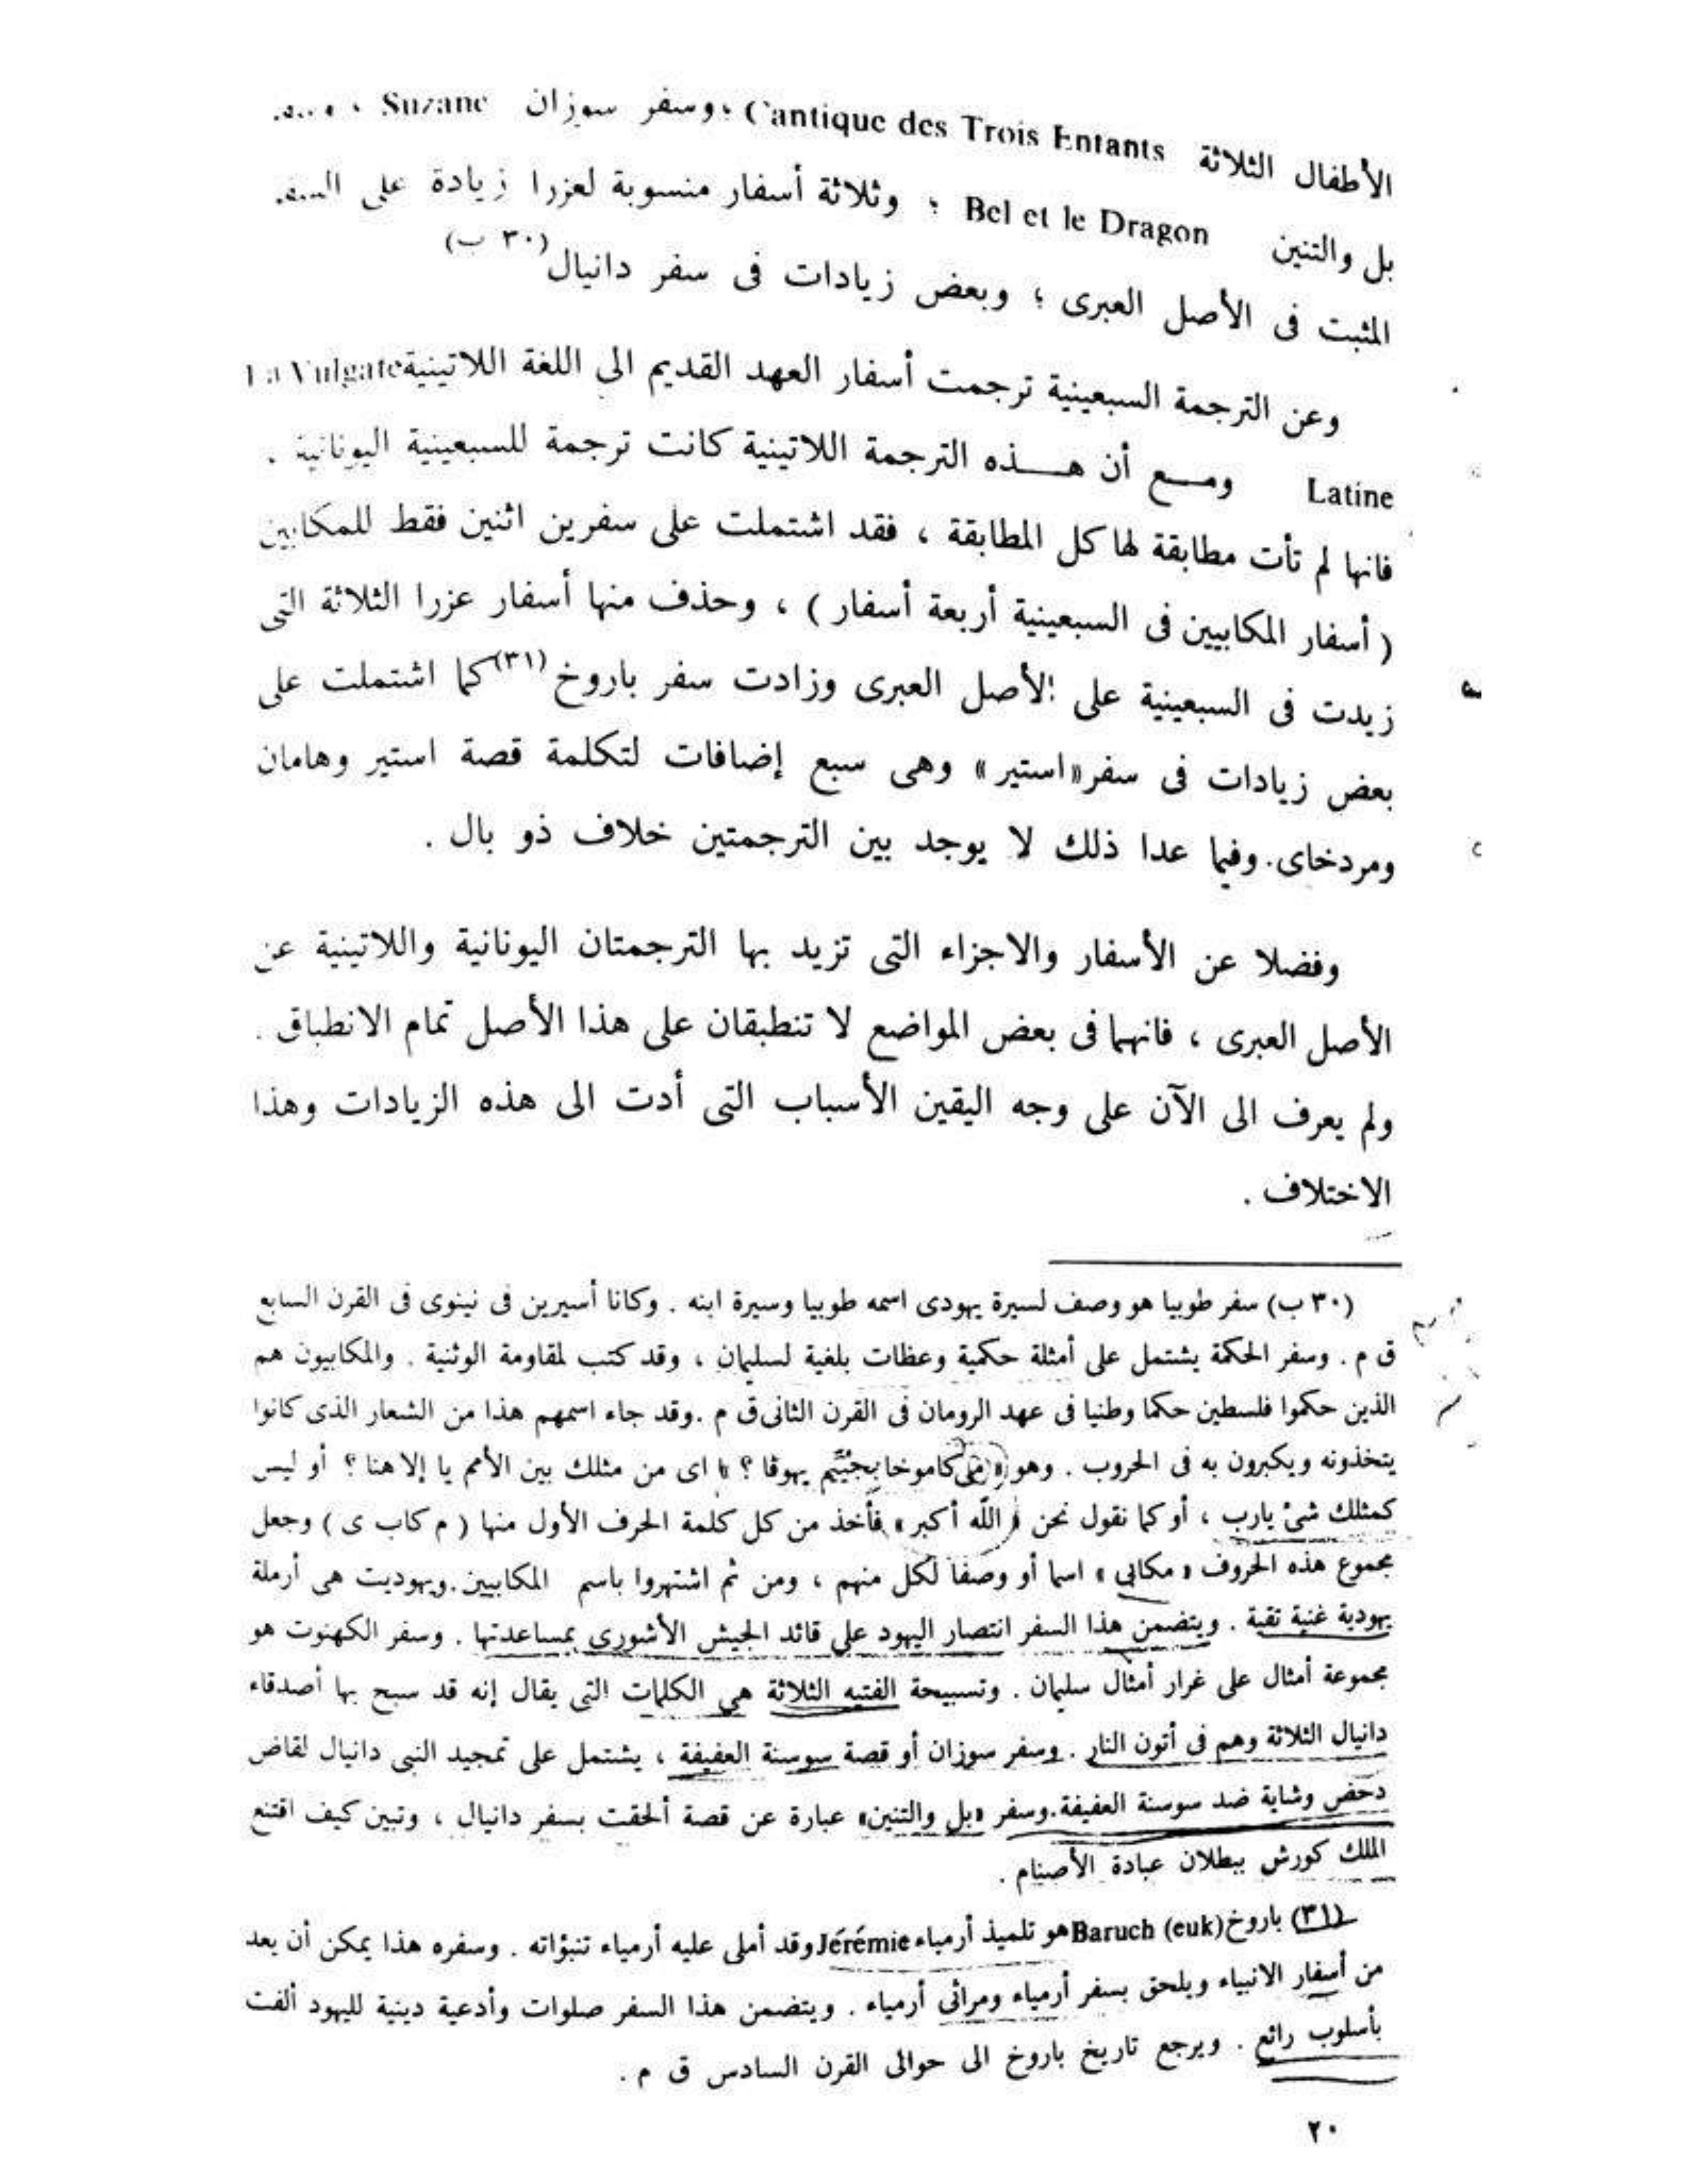 الأطفال الثلاثة Cantique des Trois Enfants ؛ وسفر سوزان Suzane ؛
بل والتنين Bel et le Dragon ؛ وثلاثة أسفار منسوبة لعزرا زيادة على السفر
المثبت فى الأصل العبرى ؛ وبعض زيادات فى سفر دانيال (٣٠ ب)
وعن الترجمة السبعينية ترجمت أسفار العهد القديم الى اللغة اللاتينية La Vulgate
Latine ومـــع أن هـــذه الترجمة اللاتينية كانت ترجمة للسبعينية اليونانية .
فانها لم تأت مطابقة لها كل المطابقة ، فقد اشتملت على سفرين اثنين فقط للمكابيين
( أسفار المكابيين فى السبعينية أربعة أسفار ) ، وحذف منها أسفار عزرا الثلاثة التى
زيدت فى السبعينية على الأصل العبرى وزادت سفر باروخ (٣١) كما اشتملت على
بعض زيادات فى سفر «استير» وهى سبع إضافات لتكلمة قصة استير وهامان
ومردخاى. وفيما عدا ذلك لا يوجد بين الترجمتين خلاف ذو بال .
وفضلا عن الأسفار والاجزاء التى تزيد بها الترجمتان اليونانية واللاتينية عن
الأصل العبرى ، فانهما فى بعض المواضع لا تنطبقان على هذا الأصل تمام الانطباق .
ولم يعرف الى الآن على وجه اليقين الأسباب التى أدت الى هذه الزيادات وهذا
الاختلاف .
(٣٠ ب) سفر طوبيا هو وصف لسيرة يهودى اسمه طوبيا وسيرة ابنه . وكانا أسيرين فى نينوى فى القرن السابع
ق م . وسفر الحكمة يشتمل على أمثلة حكمية وعظات بلغية لسليمان ، وقد كتب لمقاومة الوثنية . والمكابيون هم
الذين حكموا فلسطين حكما وطنيا فى عهد الرومان فى القرن الثانى ق م .وقد جاء اسمهم هذا من الشعار الذى كانوا
يتخذونه ويكبرون به فى الحروب . وهو « كاموخا يهوڤا ؟ » اى من مثلك بين الأمم يا إلاهنا ؟ أو ليس
كمثلك شئ يارب ، أو كما نقول نحن « الله أكبر » فأخذ من كل كلمة الحرف الأول منها ( م كاب ى ) وجعل
مجموع هذه الحروف « مكابى » اسما أو وصفا لكل منهم ، ومن ثم اشتهروا باسم المكابيين .ويهوديت هى أرملة
يهودية غنية تقية . ويتضمن هذا السفر انتصار اليهود على قائد الجيش الأشورى بمساعدتها . وسفر الكهنوت هو
مجموعة أمثال على غرار أمثال سليمان . وتسبيحة الفتيه الثلاثة هى الكلمات التى يقال إنه قد سبح بها أصدقاء
دانيال الثلاثة وهم فى أتون النار . وسفر سوزان أو قصة سوسنة العفيفة ، يشتمل على تمجيد النبى دانيال لقاض
دحض وشاية ضد سوسنة العفيفة.وسفر «بل والتنين» عبارة عن قصة ألحقت بسفر دانيال ، وتبين كيف اقتنع
الملك كورش ببطلان عبادة الأصنام .
(٣١) باروخ Baruch (euk) هو تلميذ أرمياء Jérémie وقد أملى عليه أرمياء تنبؤاته . وسفره هذا يمكن أن يعد
من أسفار الانبياء ويلحق بسفر أرمياء ومراثى أرمياء . ويتضمن هذا السفر صلوات وأدعية دينية لليهود ألفت
بأسلوب رائع . ويرجع تاريخ باروخ الى حوالى القرن السادس ق م .
٢٠